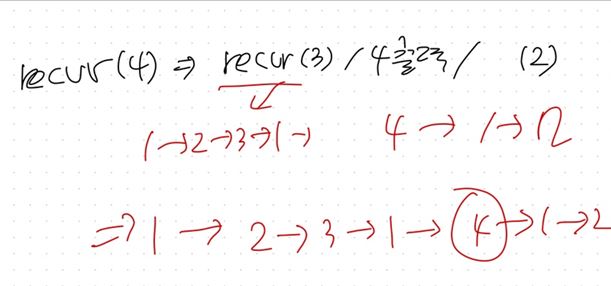 recur(4) ⇒ recur(3) / 4출력 / (2)
1→2→3→1→ 4 → 1→2
⇒ 1 → 2→3→1→ 4 →1→2